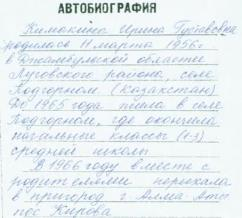 АВТОБИОГРАФИЯ
Кимакина Ирина Густавовна
родилась 11 марта 1956г
в Джамбульской областее
Луговского района, селе
Подгорном (Казахстан)
До 1965 года жила в селе
Подгорном, где окончила
начальные классы (1-3)
средней школы
В 1966 году вместе с
родителями переехала
в пригород г Алма Аты
пос Кирова